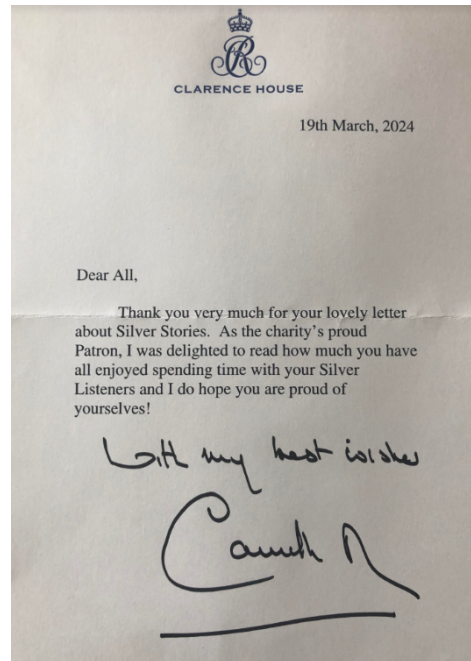 CLARENCE HOUSE
19th March, 2024
Dear All,
Thank you very much for your lovely letter
about Silver Stories. As the charity's proud
Patron, I was delighted to read how much you have
all enjoyed spending time with your Silver
Listeners and I do hope you are proud of
yourselves!
With my best wishes
Camilla R